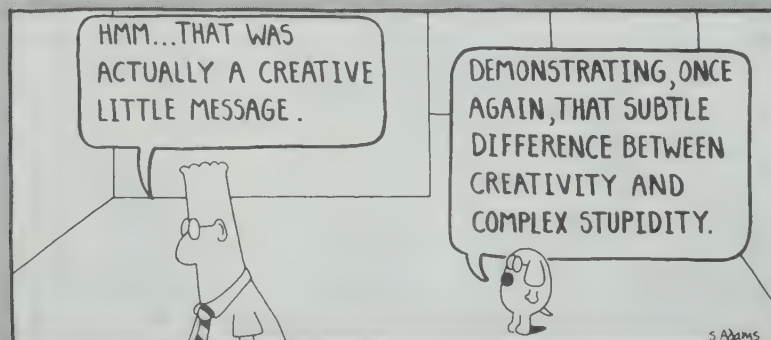 HMM...THAT WAS
ACTUALLY A CREATIVE
LITTLE MESSAGE.
DEMONSTRATING, ONCE
AGAIN, THAT SUBTLE
DIFFERENCE BETWEEN
CREATIVITY AND
COMPLEX STUPIDITY.
S Adams